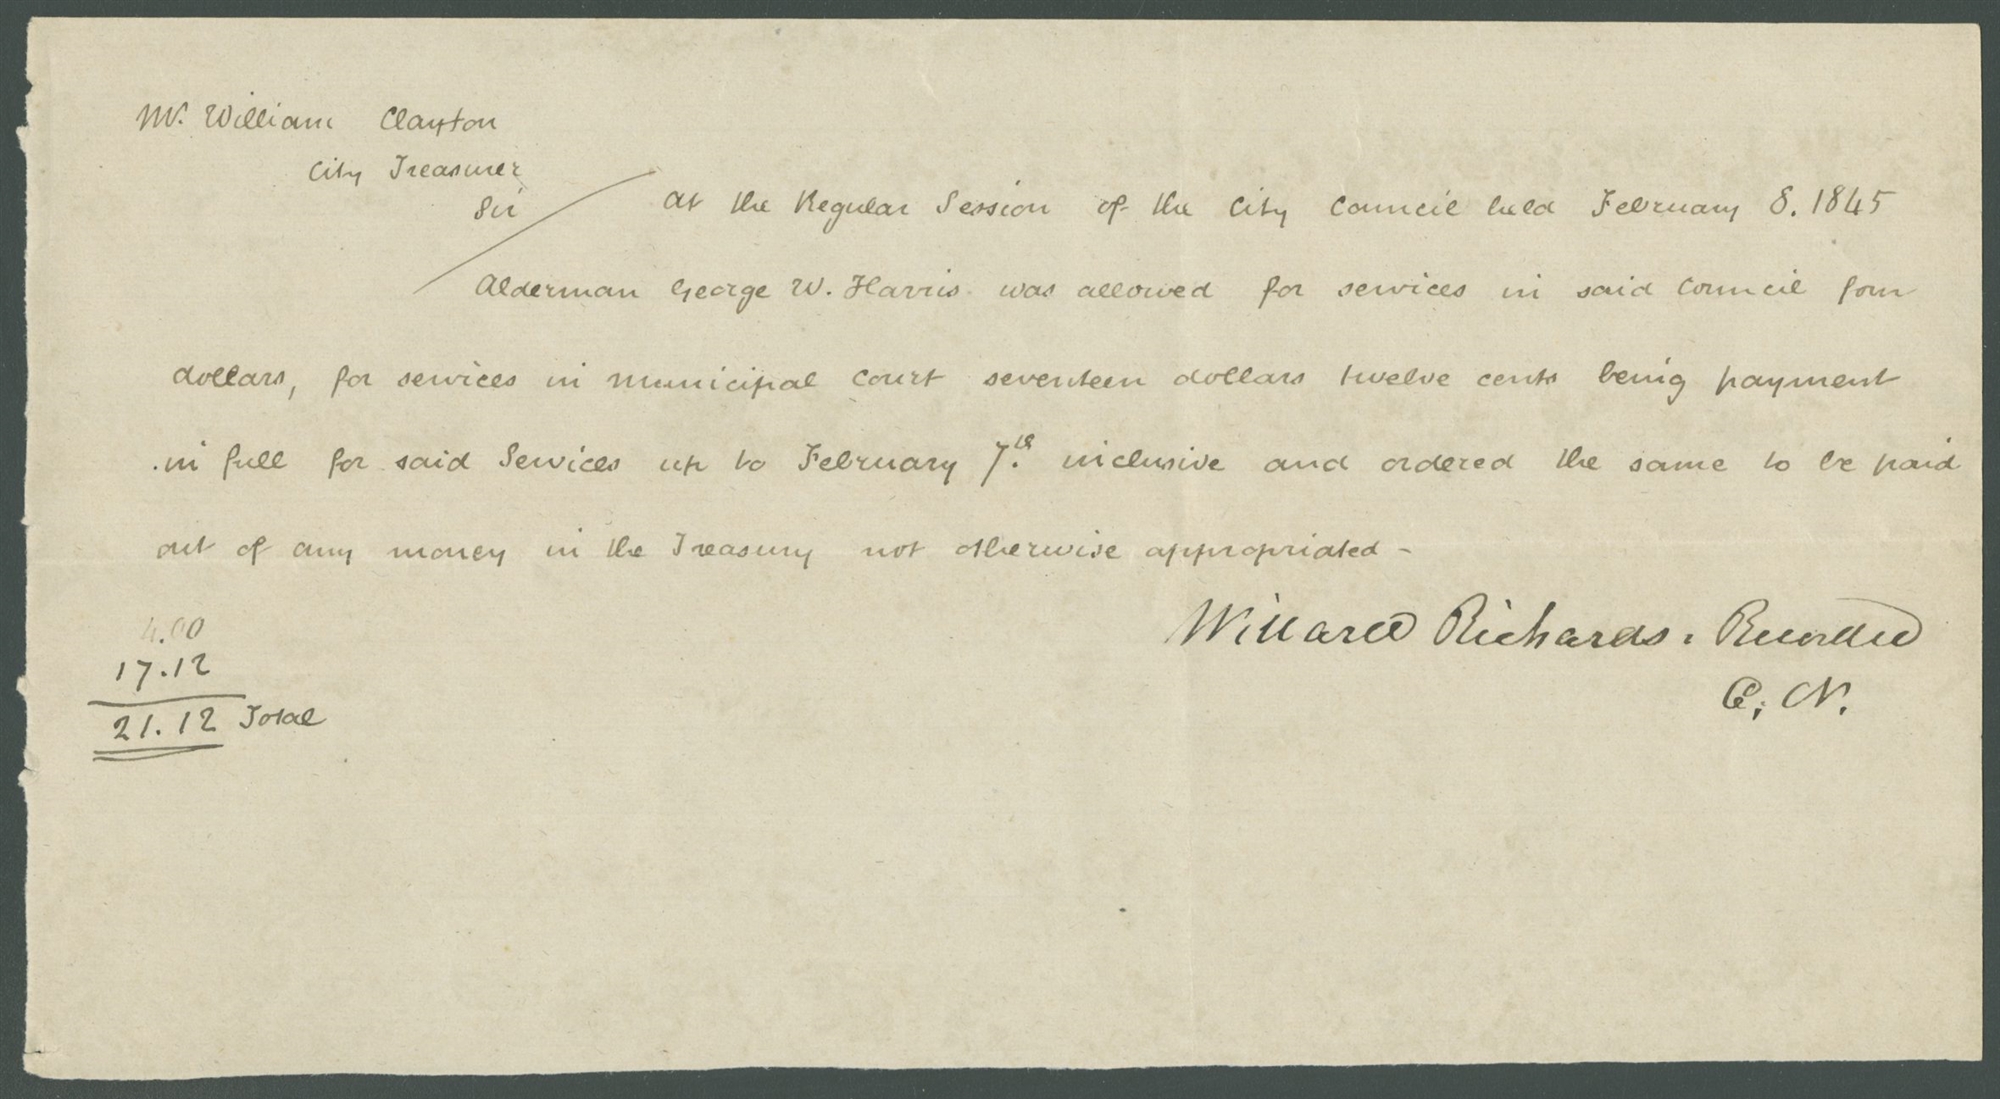 Mr. William Clayton
City Treasurer
Sir
At the Regular Session of the City Council held February 8. 1845
Alderman George W. Harris was allowed for services in said Council four
dollars, for services in municipal court seventeen dollars twelve cents being payment
in full for said Services up to February 7th. inclusive and ordered the same to be paid
out of any money in the Treasury not otherwise appropriated -
Willard Richards. Recorder
C. N.
4.00
17.12
21.12 Total